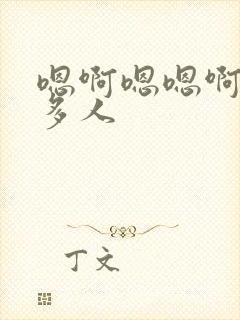 嗯啊嗯嗯啊
多人
丁文